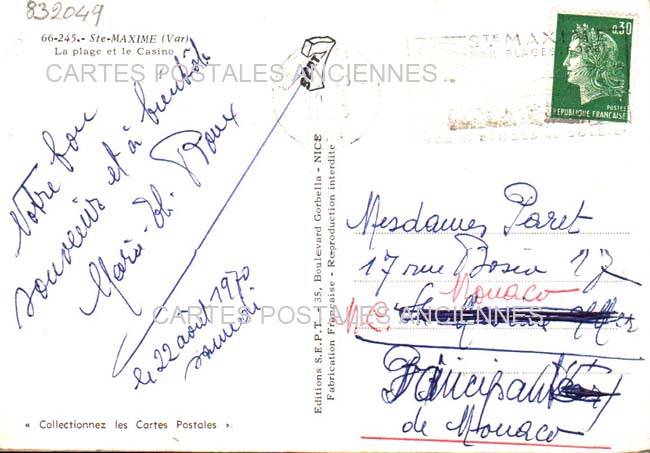 832049
66-245. - Ste-MAXIME (Var)
La plage et le Casino
CARTES POSTALES ANCIENNES
Votre bon
souvenir et à bientôt
Marie-Th. Roux
le 22 août 1970
samedi
« Collectionnez les Cartes Postales ».
SEPT
Editions S.E.P.T. - 35, Boulevard Gorbella - NICE
Fabrication Française - Reproduction interdite
STE MAXIME
PLAGES
0,30
POSTES
REPUBLIQUE FRANÇAISE
Mesdames Paret
17 rue Bosio 17
Monaco
CARTES POSTALES ANCIENNES
Principauté
de Monaco